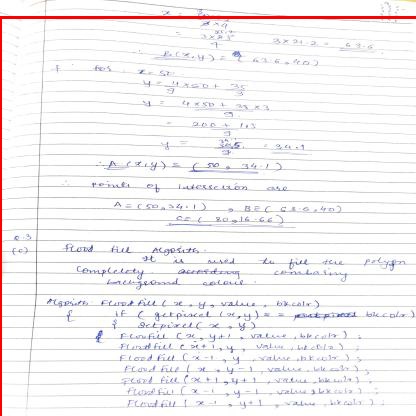 x =
= 3 x 2
9 3 x 21.2 = 63.6
∴ B(x,y) = (63.6, 40)
for x = 50
y = 4 x 50 + 35
9 3
y = 4 x 50 + 35 x 3
9
= 200 + 105
9
y = 305 = 34.1
9
∴ A (x,y) = (50, 34.1)
∴ points of intersection are
A = (50, 34.1) , B = (63.6, 40)
C = (20, 16.66)
Q.3
(c) Flood Fill Algorith.
It is used to fill the polygon
completely containing
background colour.
Algorith: FloodFill (x, y, value, bkcolr)
{ if (getpixel (x,y) = = bkcolr)
{ setpixel (x, y)
FloodFill (x, y+1, value, bkcolr);
FloodFill (x+1, y, value, bkcolr);
FloodFill (x-1, y, value, bkcolr);
FloodFill (x, y-1, value, bkcolr);
FloodFill (x+1, y+1, value, bkcolr);
FloodFill (x-1, y-1, value, bkcolr);
FloodFill (x-1, y+1, value, bkcolr);